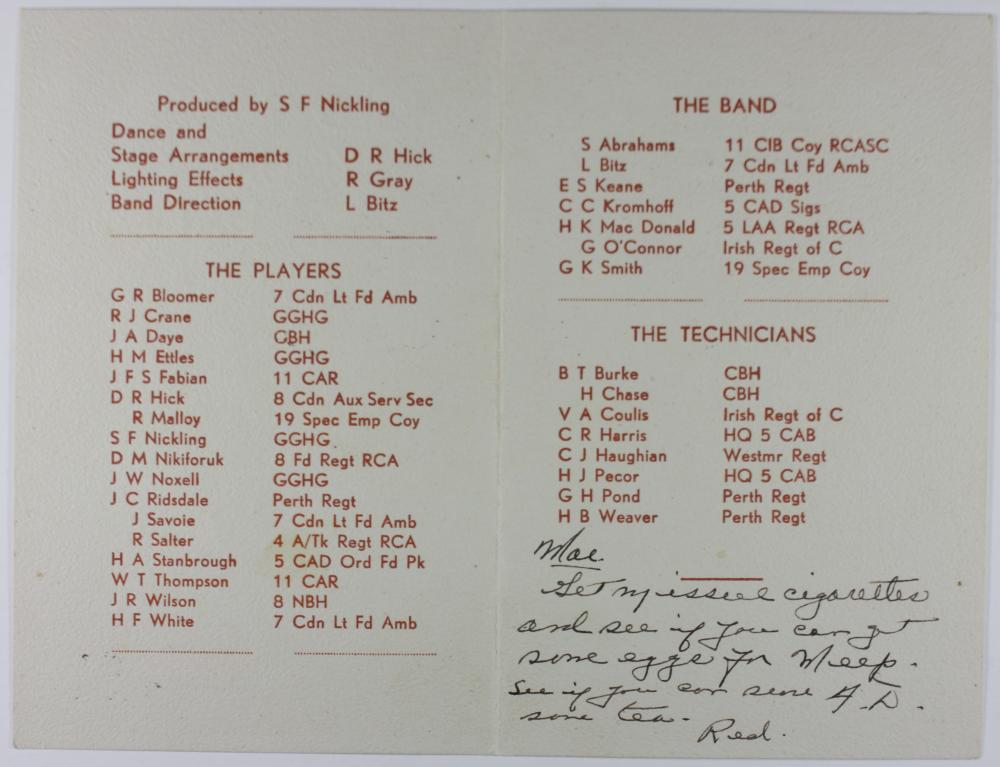 Produced by S F Nickling
Dance and
Stage Arrangements D R Hick
Lighting Effects R Gray
Band Direction L Bitz
THE PLAYERS
G R Bloomer 7 Cdn Lt Fd Amb
R J Crane GGHG
J A Daye CBH
H M Ettles GGHG
J F S Fabian 11 CAR
D R Hick 8 Cdn Aux Serv Sec
R Malloy 19 Spec Emp Coy
S F Nickling GGHG
D M Nikiforuk 8 Fd Regt RCA
J W Noxell GGHG
J C Ridsdale Perth Regt
J Savoie 7 Cdn Lt Fd Amb
R Salter 4 A/Tk Regt RCA
H A Stanbrough 5 CAD Ord Fd Pk
W T Thompson 11 CAR
J R Wilson 8 NBH
H F White 7 Cdn Lt Fd Amb
THE BAND
S Abrahams 11 CIB Coy RCASC
L Bitz 7 Cdn Lt Fd Amb
E S Keane Perth Regt
C C Kromhoff 5 CAD Sigs
H K Mac Donald 5 LAA Regt RCA
G O'Connor Irish Regt of C
G K Smith 19 Spec Emp Coy
THE TECHNICIANS
B T Burke CBH
H Chase CBH
V A Coulis Irish Regt of C
C R Harris HQ 5 CAB
C J Haughian Westmr Regt
H J Pecor HQ 5 CAB
G H Pond Perth Regt
H B Weaver Perth Regt
Mac
Get my issue cigarettes
and see if you can get
some eggs for Meep.
See if you can serve
some tea.
Red.